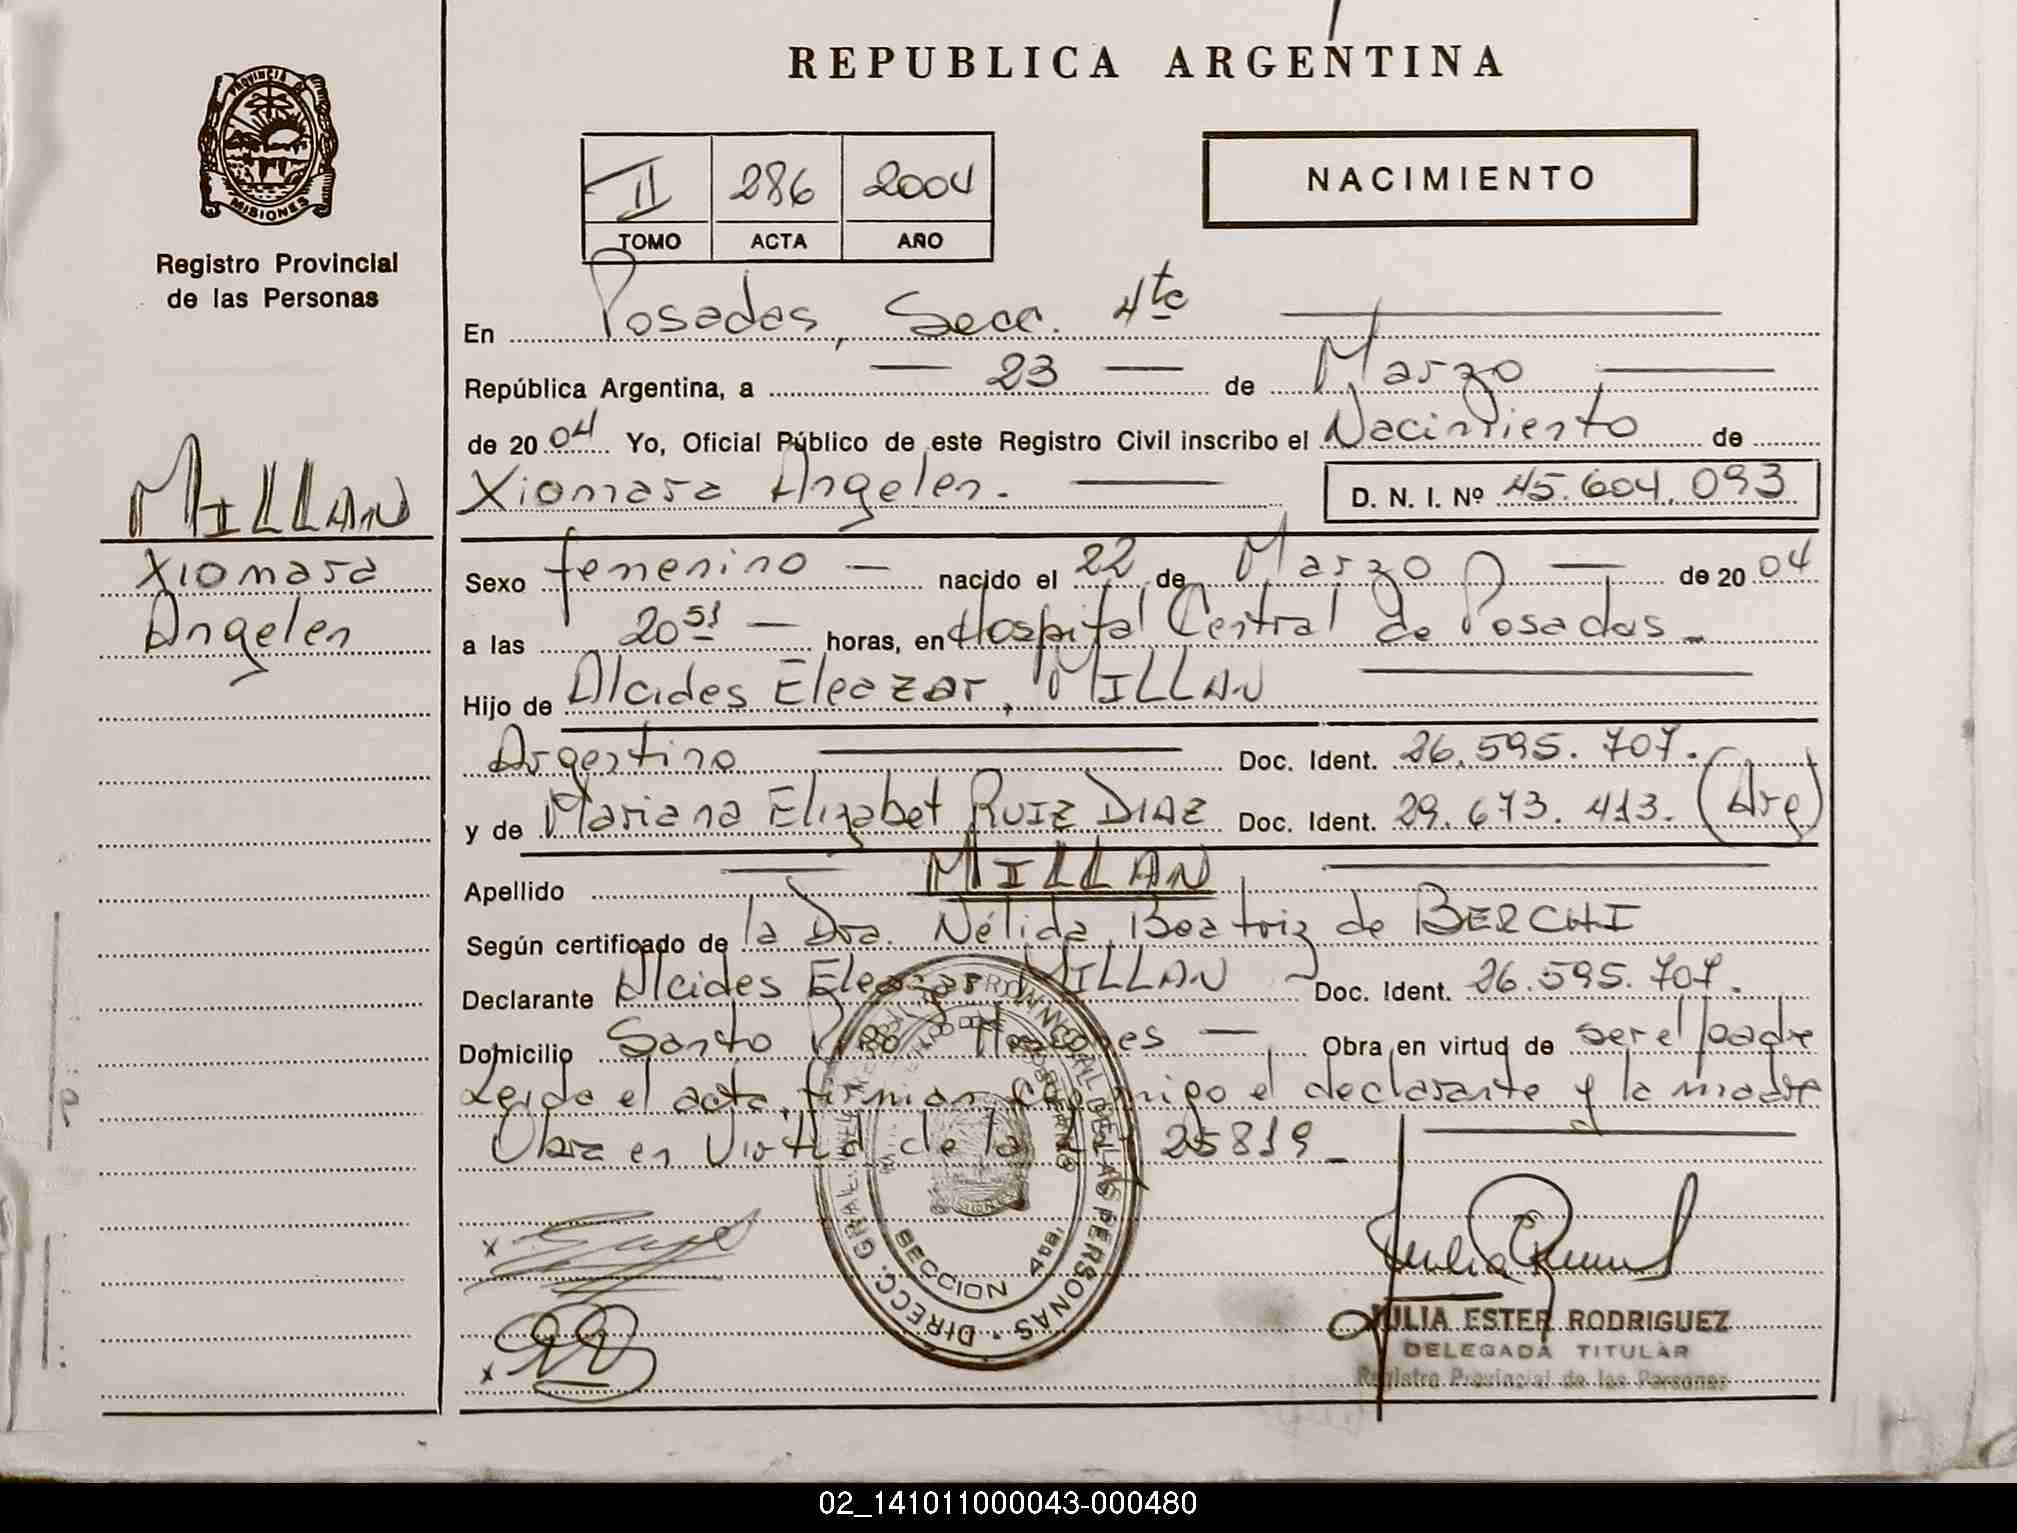 REPUBLICA ARGENTINA
PROVINCIA DE
MISIONES
Registro Provincial
de las Personas
II 286 2004
TOMO ACTA AÑO
NACIMIENTO
En Posadas, Secc. 4ta
República Argentina, a 23 de Marzo
de 2004 Yo, Oficial Público de este Registro Civil inscribo el Nacimiento de
Xiomara Angelen. D. N. I. Nº 45.604.093
MILLAN
Xiomara
Angelen
Sexo femenino nacido el 22 de Marzo de 2004
a las 20 51 horas, en Hospital Central de Posadas
Hijo de Alcides Eleazar, MILLAN
Argentino Doc. Ident. 26.595.707.
y de Mariana Elizabet RUIZ DIAZ Doc. Ident. 29.673.413. (Arg)
Apellido MILLAN
Según certificado de la Dra. Nélida Beatriz de BERCHI
Declarante Alcides Eleazar MILLAN Doc. Ident. 26.595.707.
Domicilio Santo Obra en virtud de ser el padre
Leida el acta, firman conmigo el declarante y la madre
Obra en Virtud de la 25819
DIRECC. GRAL. DEL REGISTRO PROVINCIAL DE LAS PERSONAS
SECCION 4ta.
JULIA ESTER RODRIGUEZ
DELEGADA TITULAR
Registro Provincial de las Personas
02_141011000043-000480